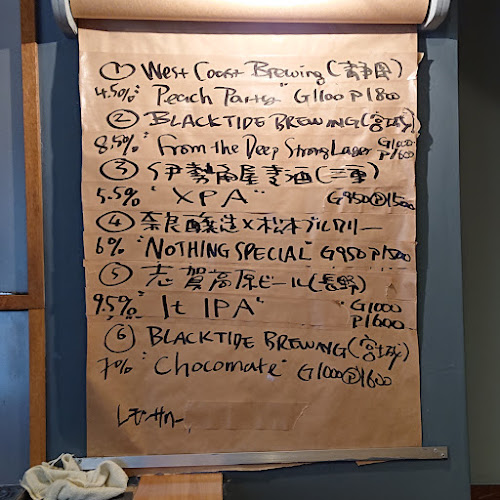 ① West Coast Brewing (静岡)
4.50% "Peach Party" G1100 P1800
② BLACKTIDE BREWING (宮城)
8.5% "From the Deep Strong Lager" G1000 P1600
③ 伊勢角屋麦酒 (三重)
5.5% "XPA" G950 P1500
④ 奈良醸造×松本ブルワリー
6% "NOTHING SPECIAL" G950 P1500
⑤ 志賀高原ビール (長野)
9.5% "It IPA" G1000 P1600
⑥ BLACKTIDE BREWING (宮城)
7% "Chocomate" G1000 P1600
レモンサワー